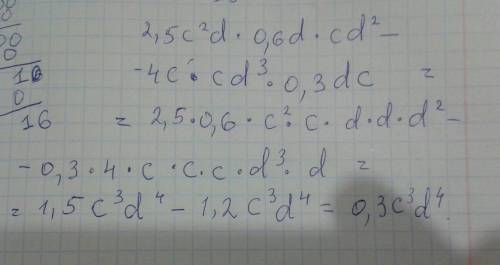 00
0
10
0
16
2,5c²d · 0,6d · cd² –
-4c · cd³ · 0,3dc =
= 2,5·0,6 · c² · c · d·d·d² –
- 0,3 · 4 · c · c · c · d³ · d =
= 1,5c³d⁴ – 1,2c³d⁴ = 0,3c³d⁴.